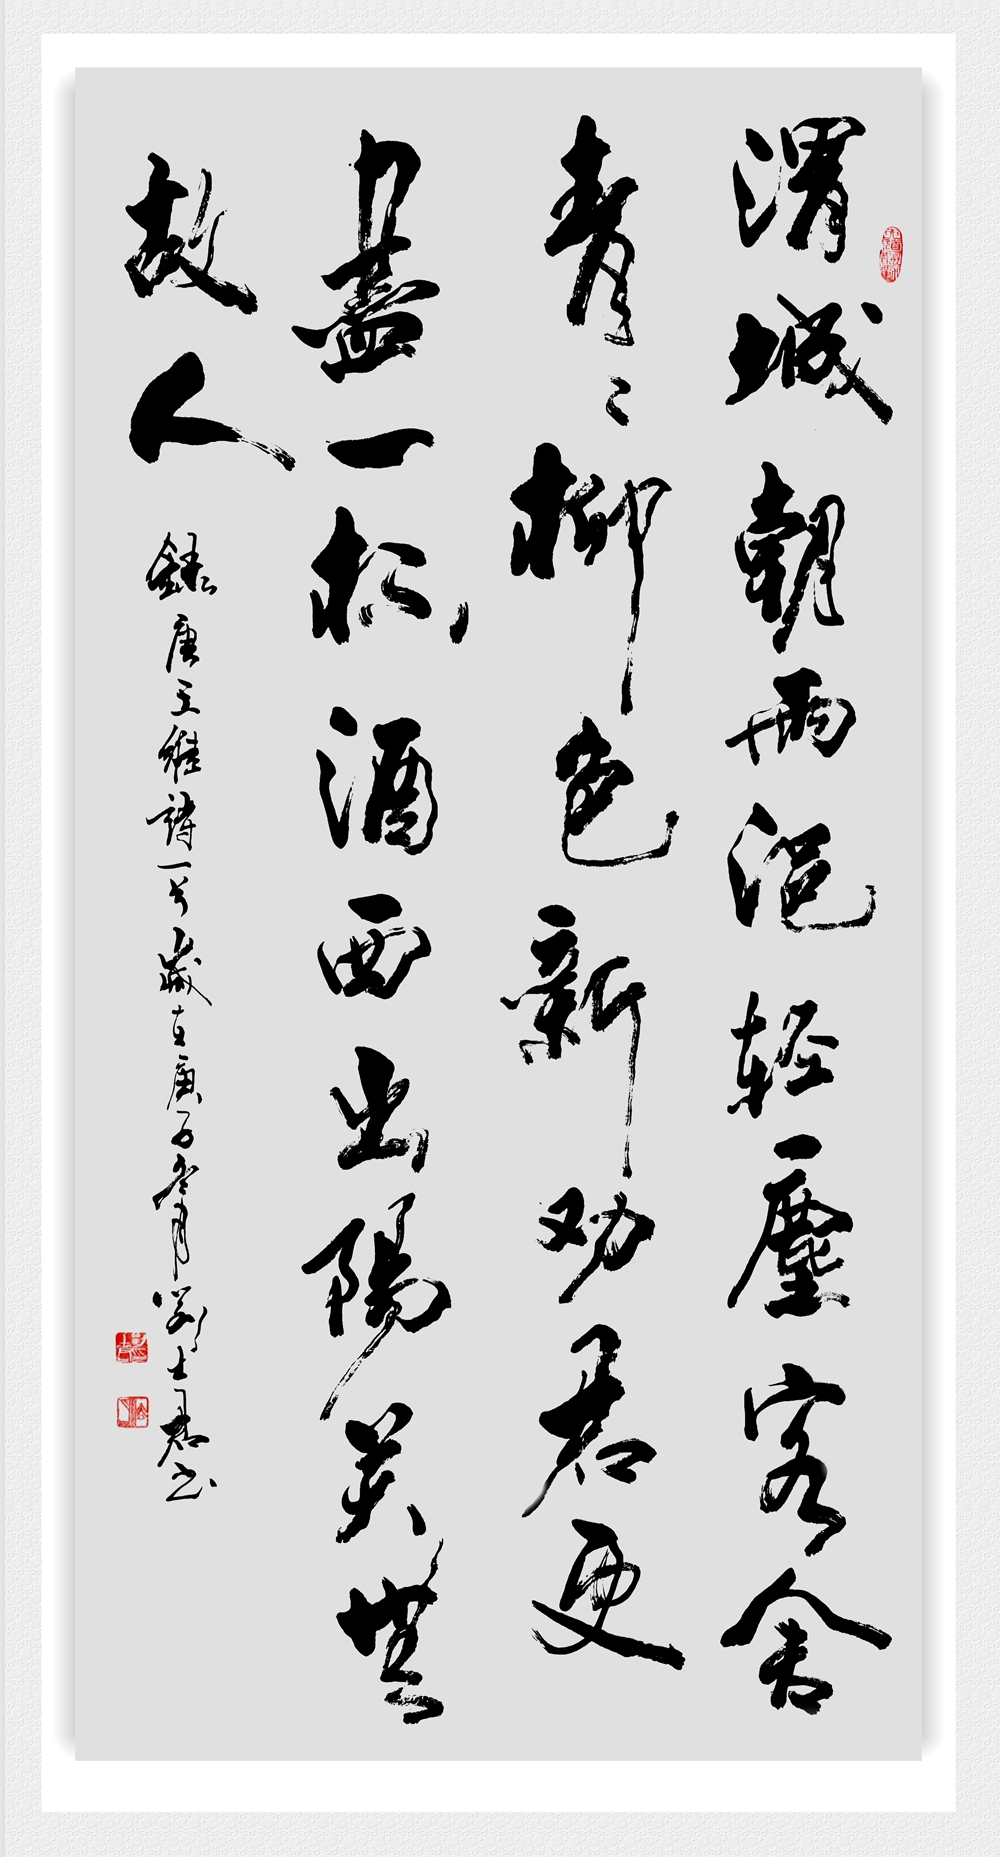 渭城朝雨浥轻塵客舍
青々柳色新劝君更
盡一杯酒西出陽关無
故人
錄唐王維詩一首歲在庚子冬月劉士君书